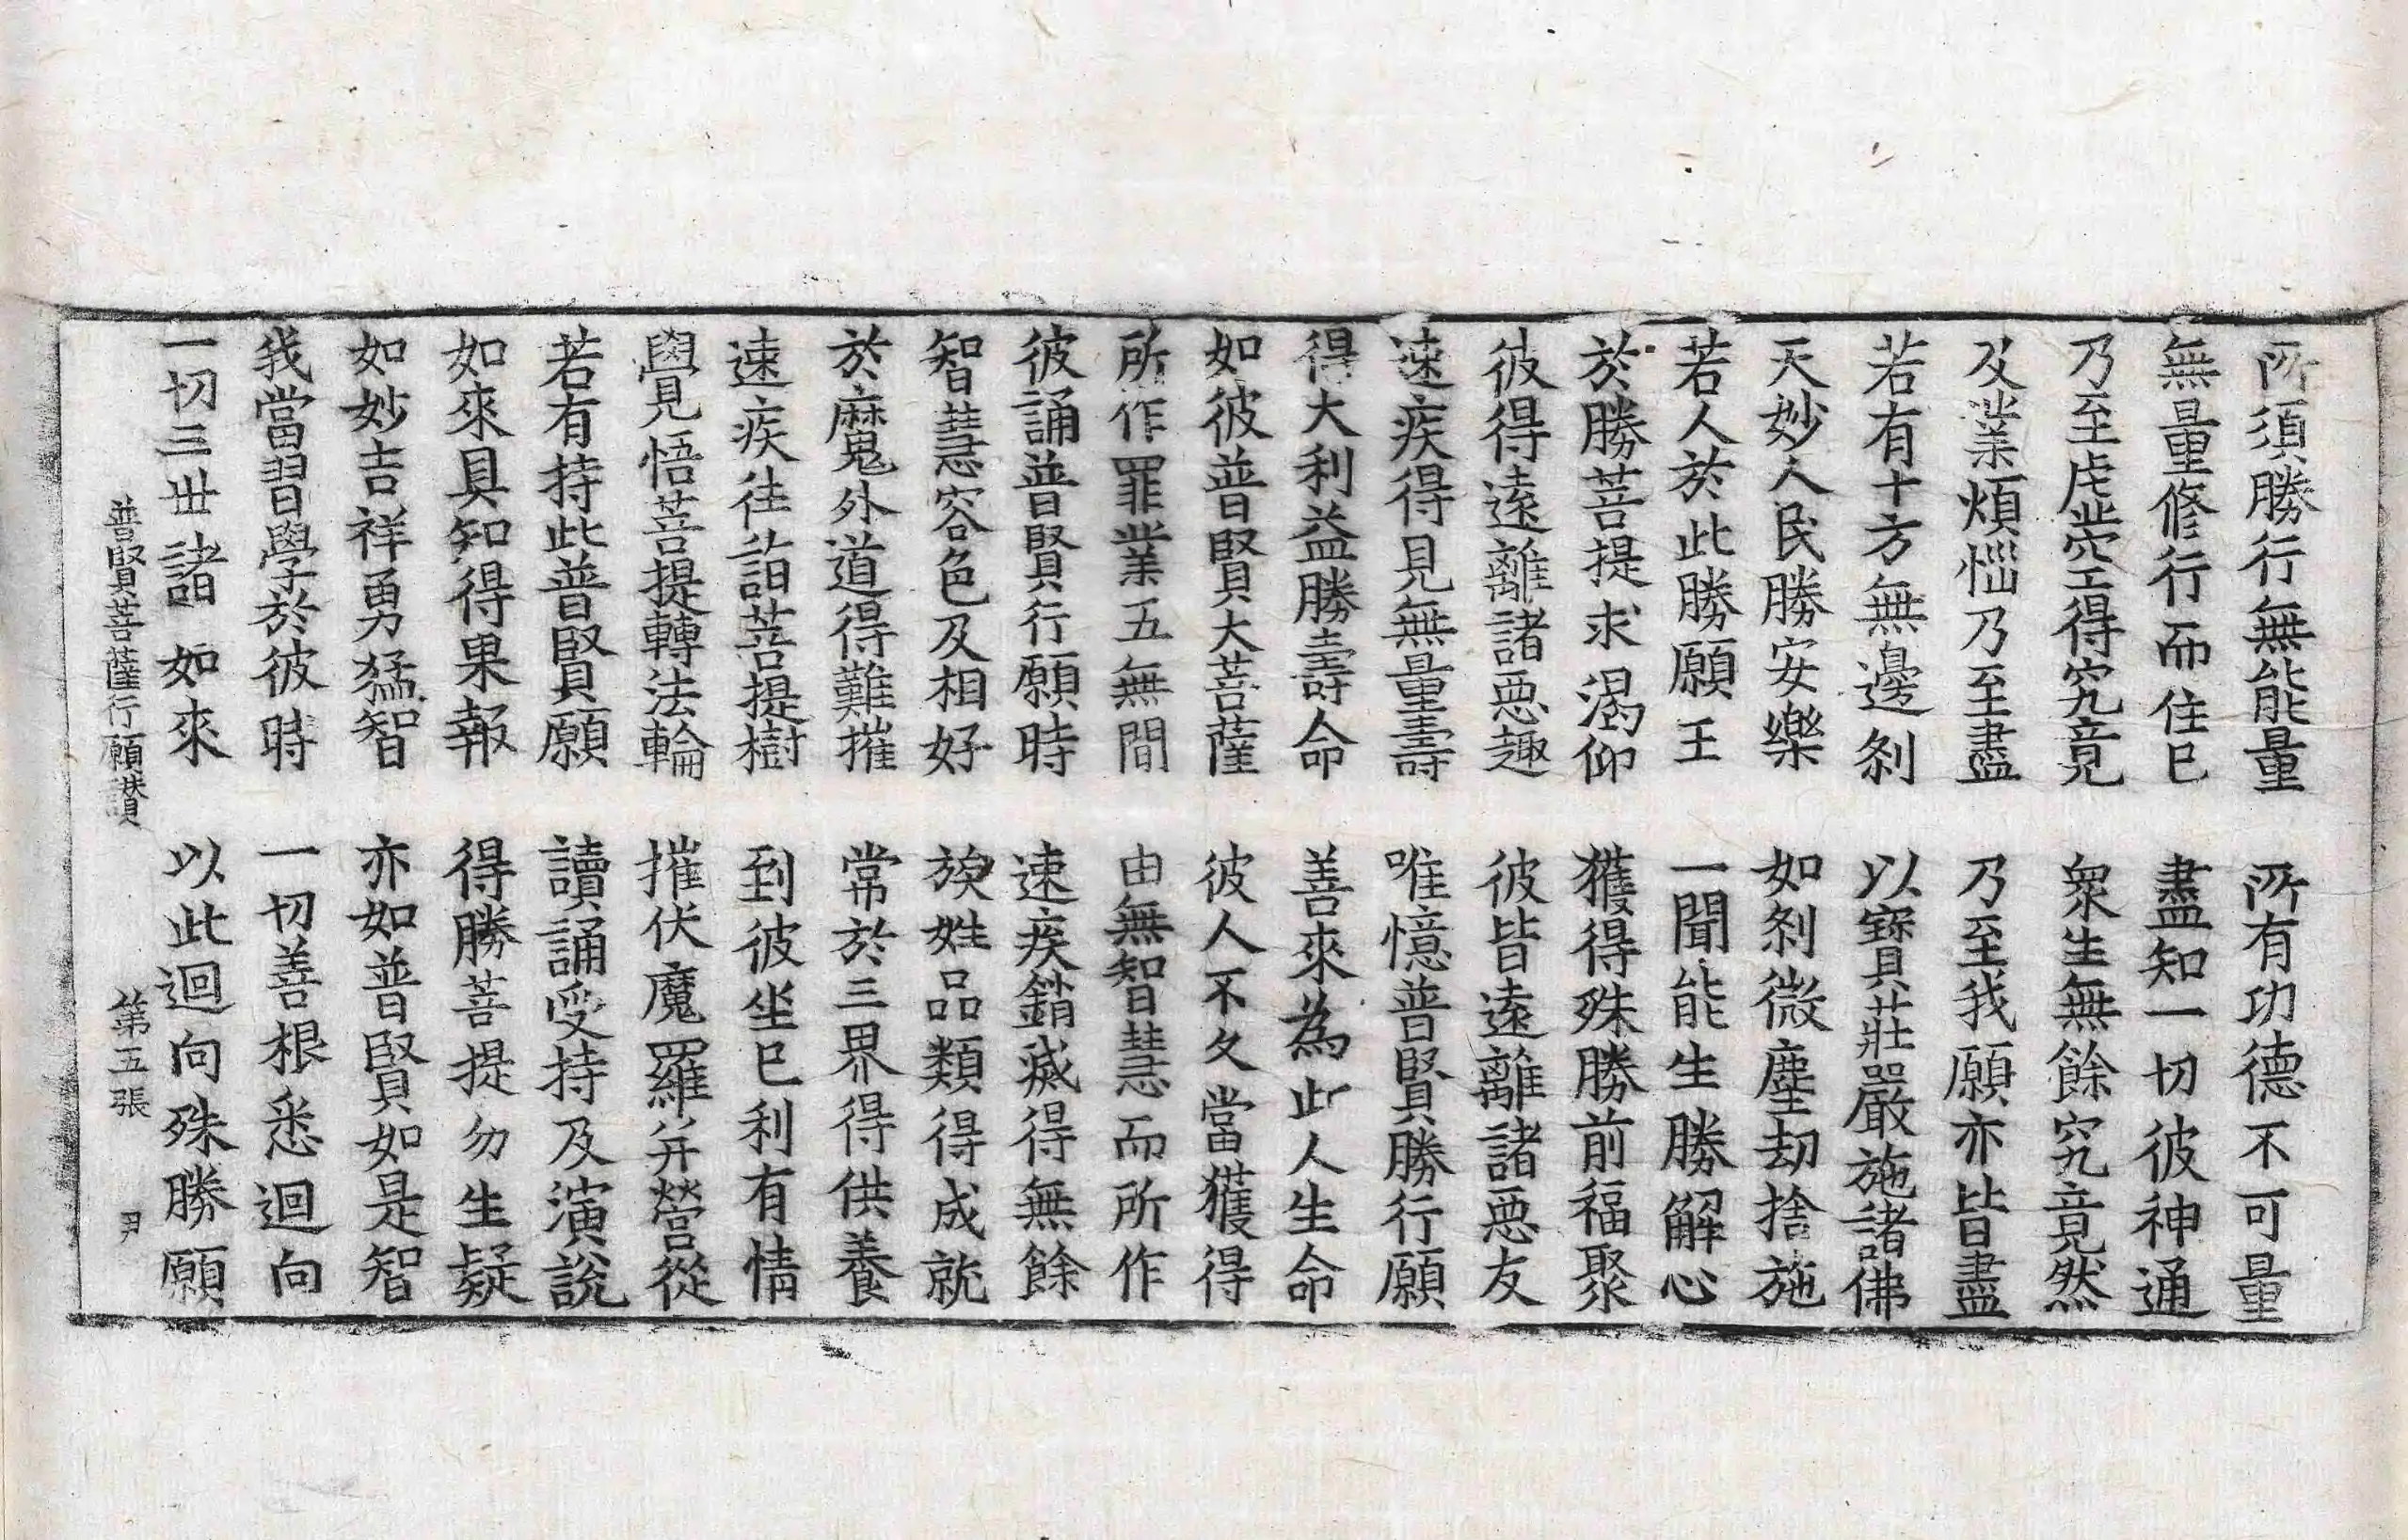 所須勝行無能量 所有功德不可量
無量修行而住已 盡知一切彼神通
乃至虛空得究竟 衆生無餘究竟然
及業煩惱乃至盡 乃至我願亦皆盡
若有十方無邊刹 以寶莊嚴施諸佛
天妙人民勝安樂 如刹微塵劫捨施
若人於此勝願王 一聞能生勝解心
於勝菩提求渴仰 獲得殊勝前福聚
彼得遠離諸惡趣 彼皆遠離諸惡友
速疾得見無量壽 唯憶普賢勝行願
得大利益勝壽命 善來為此人生命
如彼普賢大菩薩 彼人不久當獲得
所作罪業五無間 由無智慧而所作
彼誦普賢行願時 速疾銷滅得無餘
智慧容色及相好 族姓品類得成就
於魔外道得難摧 常於三界得供養
速疾往詣菩提樹 到彼坐已利有情
覺悟菩提轉法輪 摧伏魔羅并營從
若有持此普賢願 讀誦受持及演說
如來具知得果報 得勝菩提勿生疑
如妙吉祥勇猛智 亦如普賢如是智
我當習學於彼時 一切善根悉迴向
一切三世諸如來 以此迴向殊勝願
普賢菩薩行願讚 第五張 尹